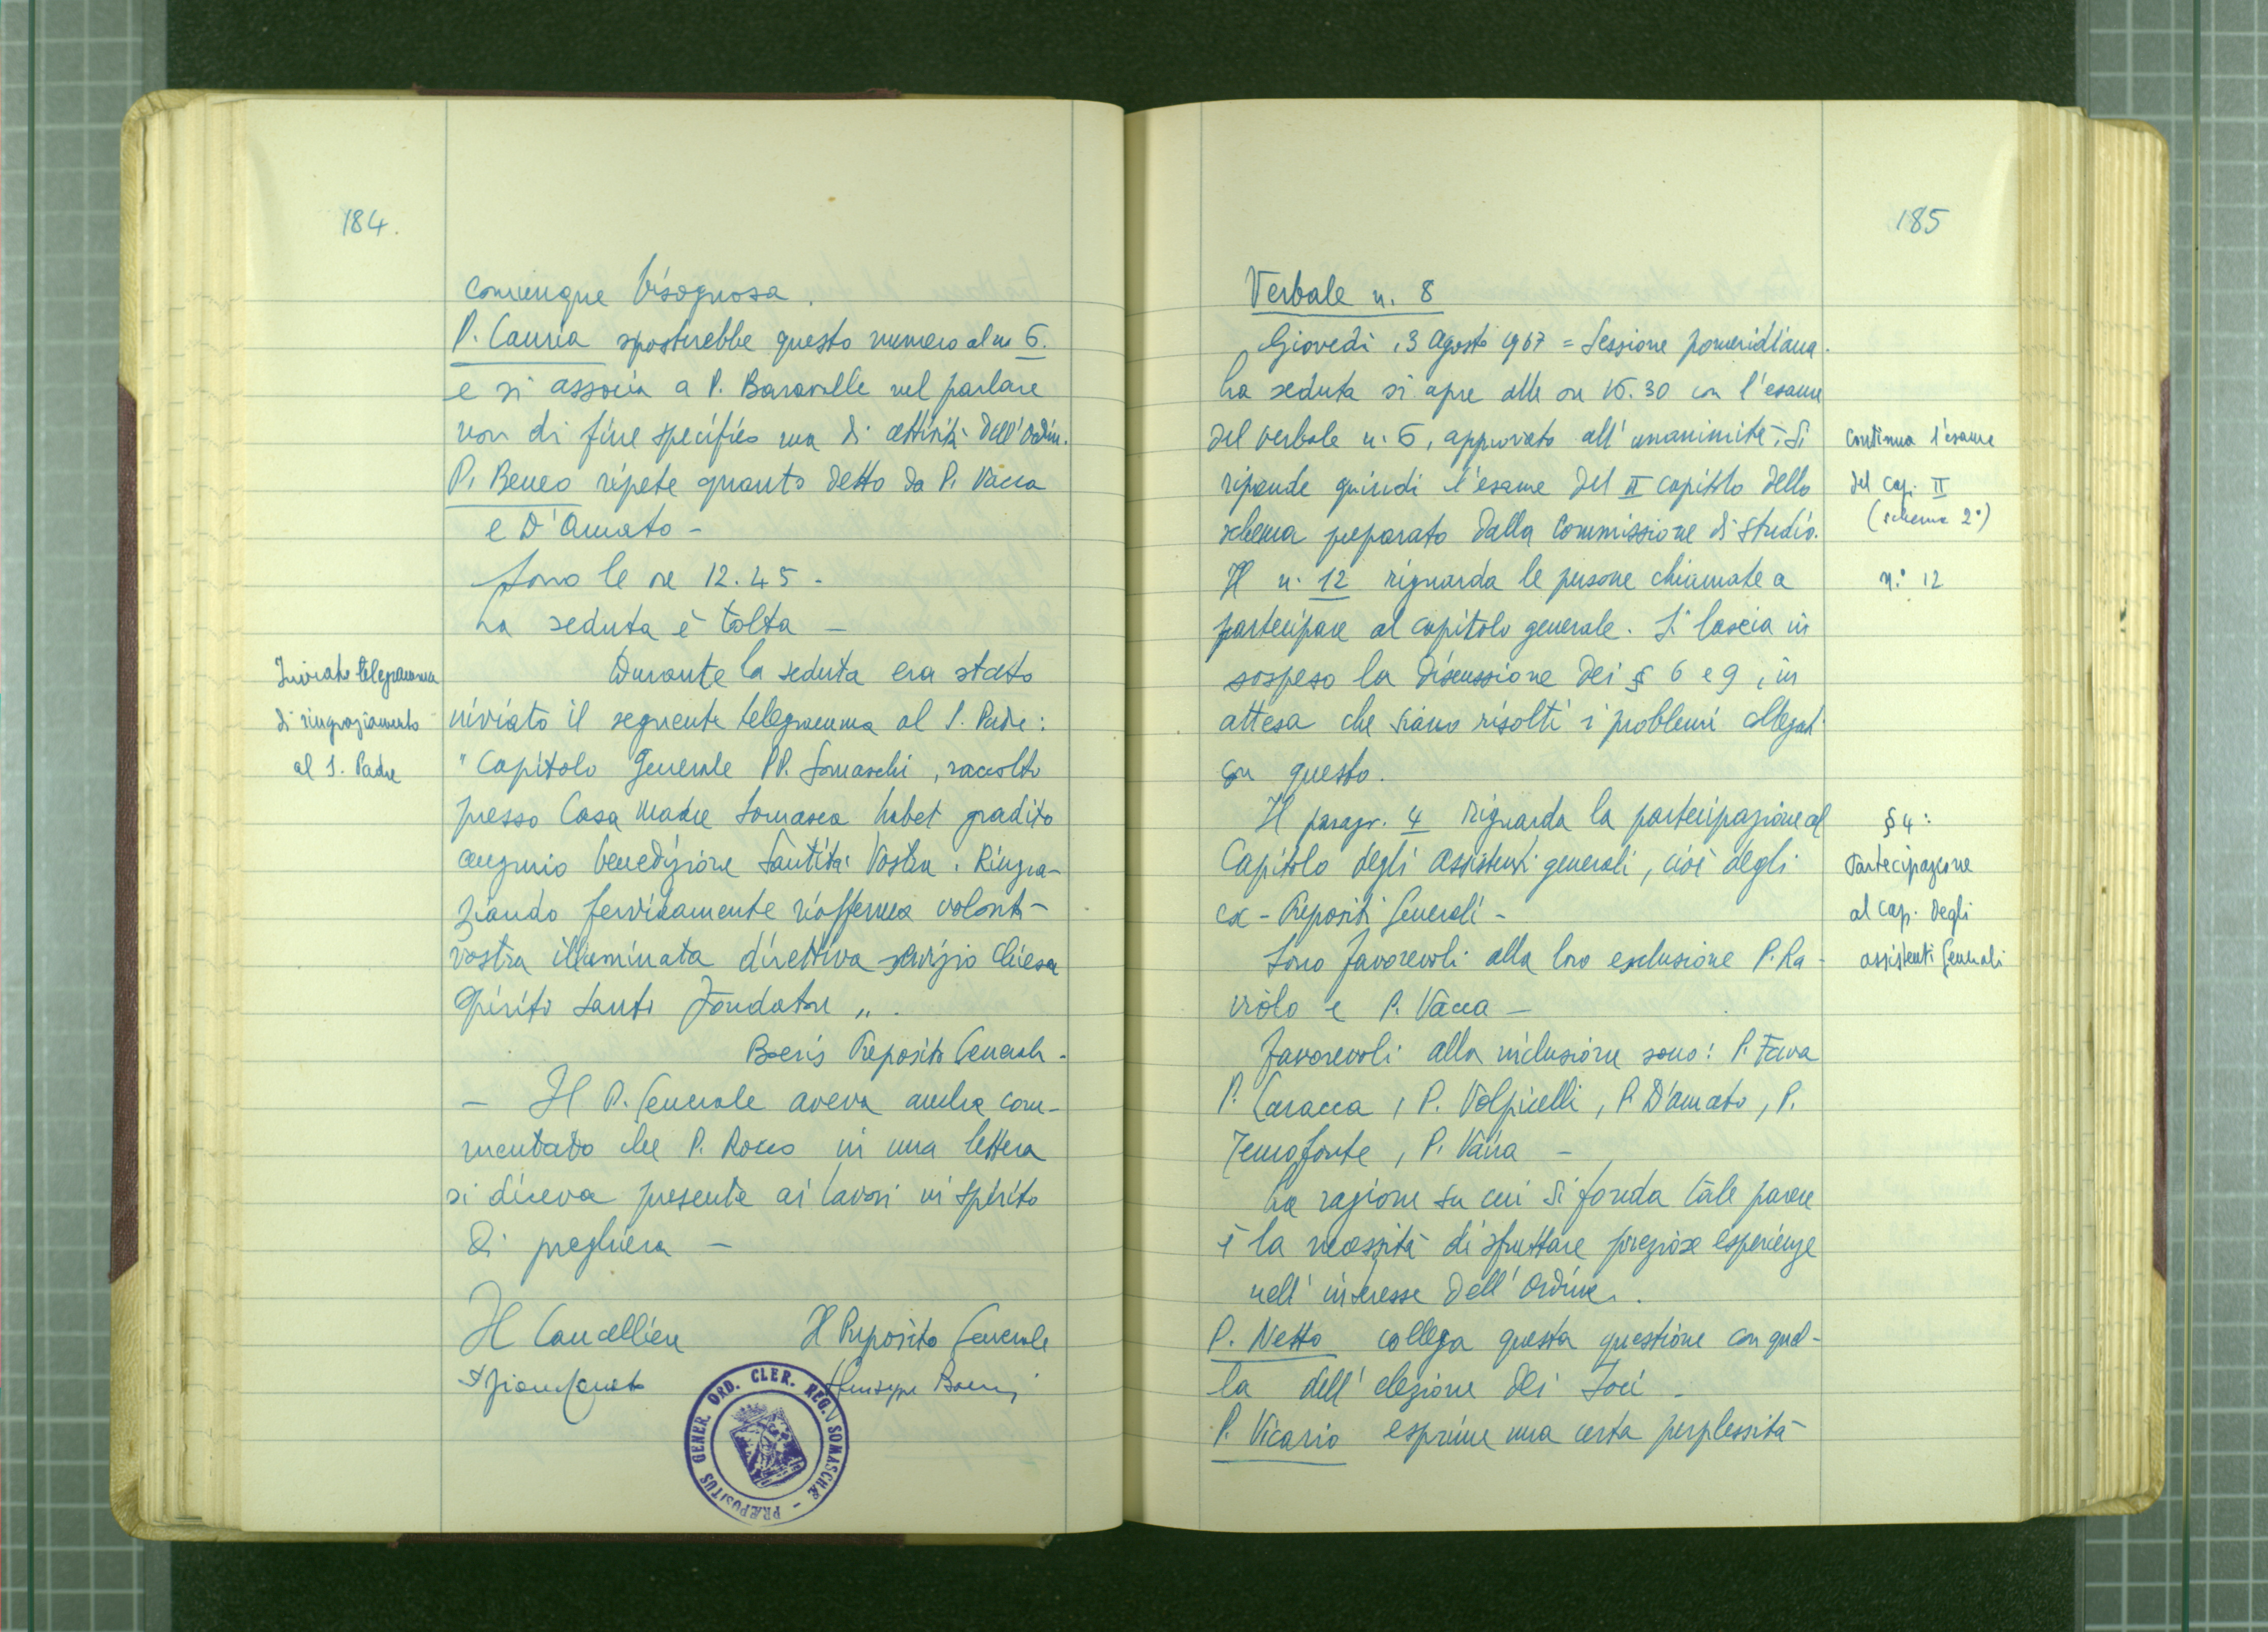 184.
comunque bisognosa.
P. Cauria sposterebbe questo numero al n 6.
e si associa a P. Baravalle nel parlare
non di fine specifico ma di attività dell'Ordin.
P. Beneo ripete quanto detto da P. Vacca
e D'Amato -
Sono le ore 12.45 -
La seduta è tolta -
Inviato telegramma
di ringraziamento
al S. Padre
Durante la seduta era stato
inviato il seguente telegramma al S. Padre:
"Capitolo Generale PP. Somaschi, raccolto
presso Casa Madre Somasca habet gradito
augurio benedizione Santità Vostra. Ringra-
ziando fervidamente riafferma volontà
vostra illuminata direttiva servizio Chiesa
Spirito Santo Fondatore".
Boeris Preposito Generale.
- Il P. Generale aveva anche com-
mentato che P. Rocco in una lettera
si diceva presente ai lavori in spirito
di preghiera -
Il Cancelliere Il Preposito Generale
Giuseppe Boeris
PRÆPOSITUS GENER. ORD. CLER. REG. SOMASCHÆ -
185
Verbale n. 8
Giovedì, 3 Agosto 1967 = Sessione pomeridiana.
La seduta si apre alle ore 15.30 con l'esame
del verbale n. 6, approvato all'unanimità. Si
riprende quindi l'esame del II capitolo dello
schema preparato dalla Commissione di studio.
Continua l'esame
del Cap. II
(schema 2°)
Il n. 12 riguarda le persone chiamate a
n.° 12
partecipare al capitolo generale. Si lascia in
sospeso la discussione dei § 6 e 9, in
attesa che siano risolti i problemi collegati
con questo.
Il paragr. 4 riguarda la partecipazione al
Capitolo degli assistenti generali, cioè degli
ex-Prepositi Generali -
§ 4:
Partecipazione
al Cap. degli
assistenti Generali
Sono favorevoli alla loro esclusione P. Ra-
violo e P. Vacca -
Favorevoli alla inclusione sono: P. Fava
P. Caracca, P. Volpicelli, P. D'Amato, P.
Temofonte, P. Vaira -
La ragione su cui si fonda tale parere
è la necessità di sfruttare preziose esperienze
nell'interesse dell'Ordine.
P. Netto collega questa questione con quel-
la dell'elezione dei Soci -
P. Vicario esprime una certa perplessità